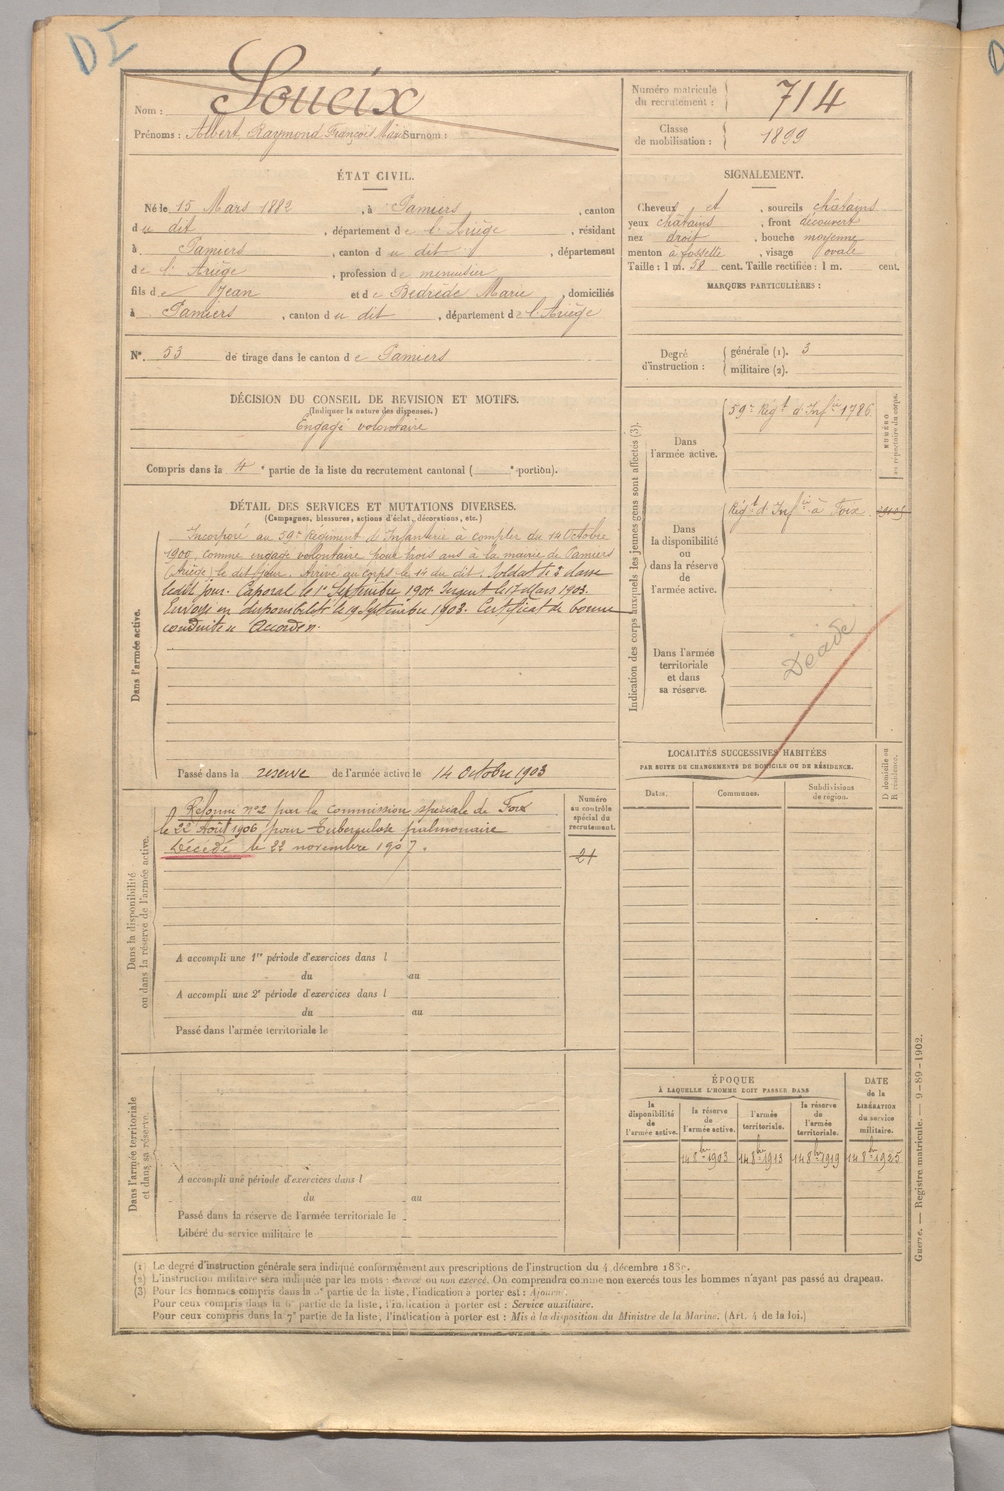 DI
Nom : Soueix
Prénoms : Albert, Raymond François Surnom :
Numéro matricule du recrutement : 714
Classe de mobilisation : 1899
ÉTAT CIVIL.
Né le 15 Mars 1882, à Pamiers, canton
du dit, département de l'Ariège, résidant
à Pamiers, canton du dit, département
de l'Ariège, profession de menuisier
fils de Jean et de Bedrède Marie, domiciliés
à Pamiers, canton du dit, département de l'Ariège
N° 53 de tirage dans le canton de Pamiers
SIGNALEMENT.
Cheveux et, sourcils châtains
yeux châtains, front découvert
nez droit, bouche moyenne
menton à fossette, visage ovale
Taille : 1 m. 58 cent. Taille rectifiée : 1 m. cent.
MARQUES PARTICULIÈRES :
Degré d'instruction : générale (1). 3
militaire (2).
DÉCISION DU CONSEIL DE REVISION ET MOTIFS.
(Indiquer la nature des dispenses.)
Engagé volontaire
Compris dans la 4e partie de la liste du recrutement cantonal ( e portion).
DÉTAIL DES SERVICES ET MUTATIONS DIVERSES.
(Campagnes, blessures, actions d'éclat, décorations, etc.)
Dans l'armée active.
Incorporé au 59e Régiment d'Infanterie à compter du 14 Octobre
1900, comme engagé volontaire pour trois ans à la mairie de Pamiers
(Ariège) le dit jour. Arrivé au corps le 14 du dit. Soldat de 2 classe
ledit jour. Caporal le 1er Septembre 1901. Sergent le 17 Mars 1903.
Envoyé en disponibilité le 19 Septembre 1903. Certificat de bonne
conduite Accordé.
Passé dans la reserve de l'armée active le 14 octobre 1903
Indication des corps auxquels les jeunes gens sont affectés (3).
Dans l'armée active.
59e Régt d'Infie 1786
NUMÉRO au répertoire du corps.
Dans la disponibilité ou dans la réserve de l'armée active.
Régt d'Infie à Foix
Dans l'armée territoriale et dans sa réserve.
Décédé
LOCALITÉS SUCCESSIVES HABITÉES
PAR SUITE DE CHANGEMENTS DE DOMICILE OU DE RÉSIDENCE.
Dates. Communes. Subdivisions de région. D domicile ou R résidence.
Dans la disponibilité ou dans la réserve de l'armée active.
Réformé n°2 par la Commission spéciale de Foix
le 22 Août 1906 pour Tuberculose pulmonaire
Décédé le 22 novembre 1907.
Numéro au contrôle spécial du recrutement.
21
A accompli une 1re période d'exercices dans l
du au
A accompli une 2e période d'exercices dans l
du au
Passé dans l'armée territoriale le
Dans l'armée territoriale et dans sa réserve.
A accompli une période d'exercices dans l
du au
Passé dans la réserve de l'armée territoriale le
Libéré du service militaire le
ÉPOQUE
À LAQUELLE L'HOMME DOIT PASSER DANS
la disponibilité de l'armée active. la réserve de l'armée active. l'armée territoriale. la réserve de l'armée territoriale.
DATE de la LIBÉRATION du service militaire.
14 8bre 1903 14 8bre 1913 14 8bre 1919 14 8bre 1925
(1) Le degré d'instruction générale sera indiqué conformément aux prescriptions de l'instruction du 4 décembre
(2) L'instruction militaire sera indiquée par les mots : exercé ou non exercé. On comprendra comme non exercés tous les hommes n'ayant pas passé au drapeau.
(3) Pour les hommes compris dans la partie de la liste, l'indication à porter est : Ajourné.
Pour ceux compris dans la 6e partie de la liste, l'indication à porter est : Service auxiliaire.
Pour ceux compris dans la 7e partie de la liste, l'indication à porter est : Mis à la disposition du Ministre de la Marine. (Art. 4 de la loi.)
Guerre. — Registre matricule. — 9-89-1902.